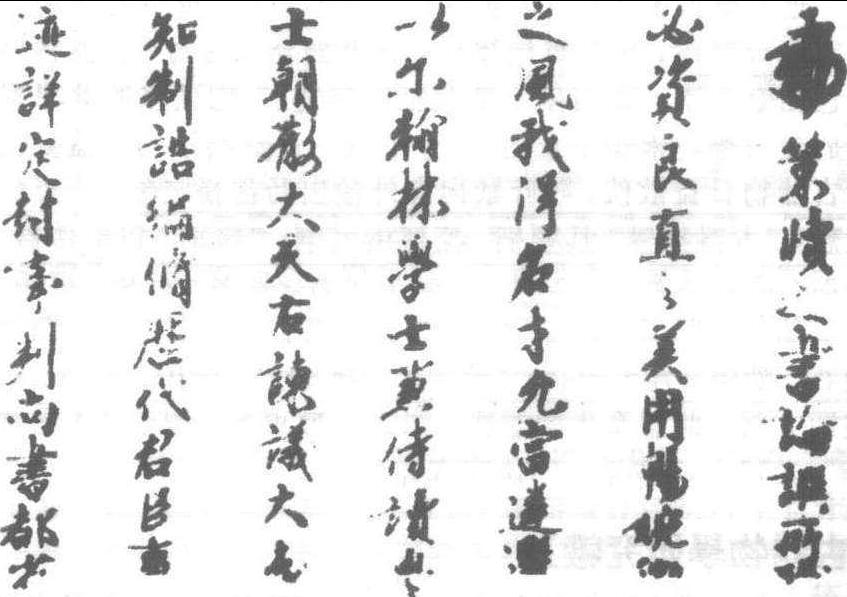 勅策牘之書論譔所
必資良直之美用暢
之風我得名才允當遴
以尔翰林學士兼侍讀學
士朝散大夫右諫議大夫
知制誥編修歷代君臣事
迹詳定封事判尚書都省